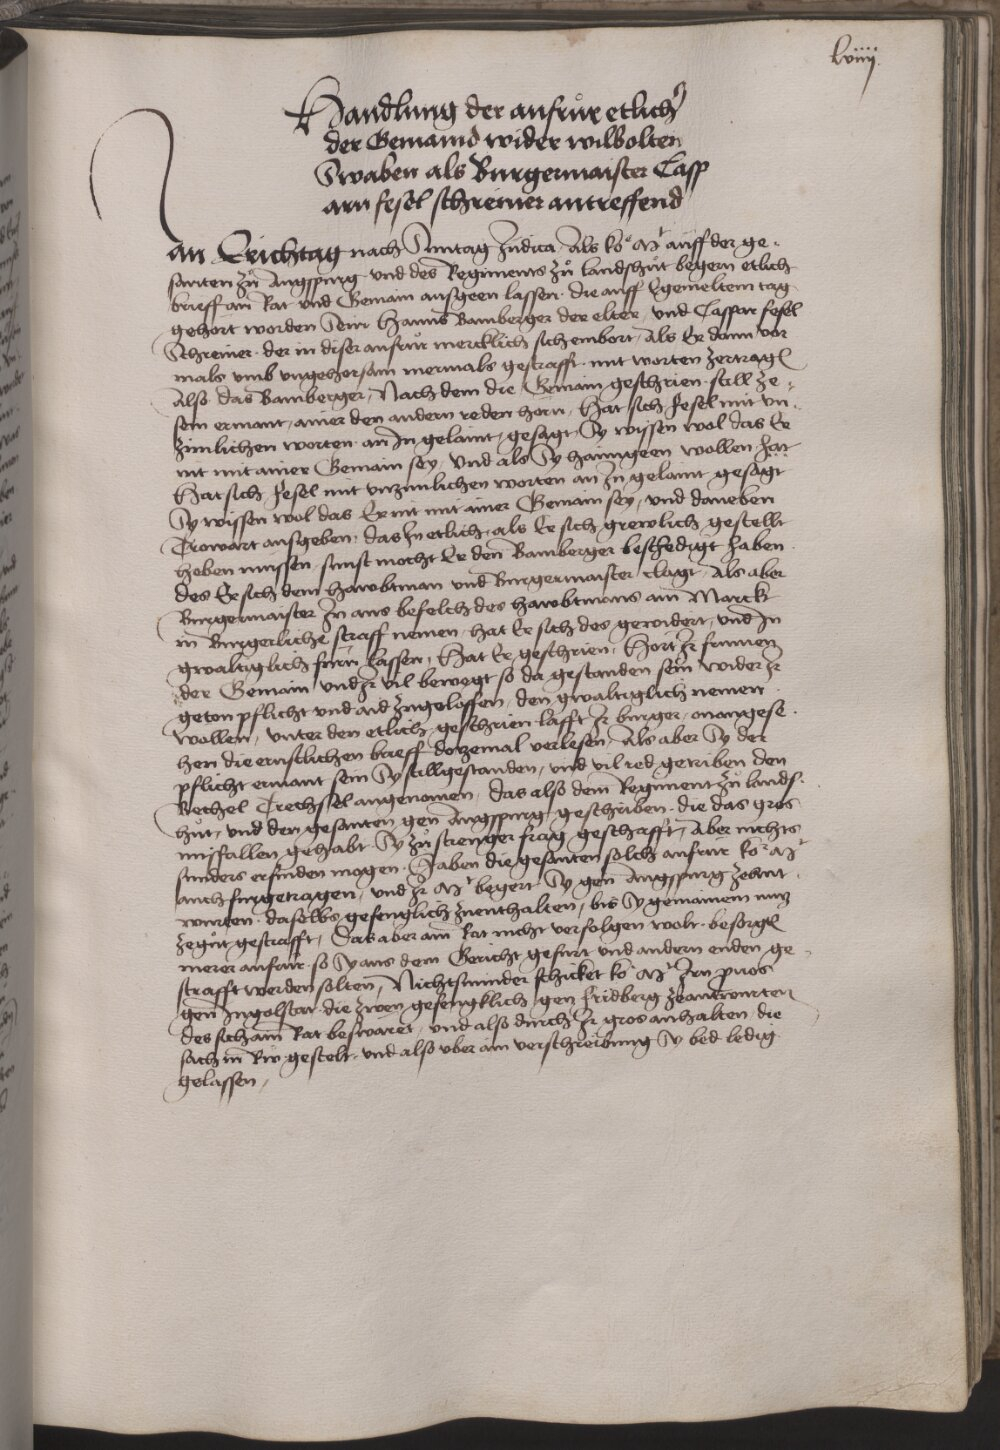 lviiij.
Handlung der aufrur etlicher
der Gemaind wider wilbolten
Swaben als Burgermaister Casp
arn fesel schreiner antreffend
An Erichtag nach Sunntag Judica, Als ko.r Mt auff der ge-
santen zu Augspurg und des Regiments zu landshut begern etlich
brieff am Rat und Gemain ausgeen lassen. die auff Egemeltem tag
gehort worden Sein Hanns Bamberger der elter, und Caspar fesel
Schreiner. der in diser aufrur mercklich sich embort, Als Er dann vor
mals umb ungehorsam mermals gestrafft. mit worten zertragen
Also das Bamberger, Nachdem die Gemain geschrien still ze-
sein ermant, ainer den andern reden horn, Hat sich fesel mit un-
zimlichen worten an In gelaint, gesagt, Sy wissen wol das Er
nit mit ainer Gemain sey, und als Sy haimgeen wollen hat
Hat sich fesel mit unzimlichen worten an In gelaint gesagt
Sy wissen wol das Er nit mit ainer Gemain sey, und daneben
Trowart ausgeben. das In etlich, als Er sich grewlich gestellt
heben mussen, sunst mocht Er den Bamberger beschedigt haben.
des Er sich dem hawbtman und Burgermaister clagt, Als aber
Burgermaister In aus befelch des hawbtmans am Marckt
in Burgerliche straff nemen, hat Er sich des gewidert, und In
gwaltiglich furn lassen, Hat Er geschrien, Hort Ir frumen
der Gemain und Ir vil bewegt so da gestanden sein wider Ir
geton pflicht und aid zugelossen, den gwaltiglich nemen
wollen, unter den etlich geschrien lasst Ir burger, onangese-
hen die ernstlichen brieff dozemal verlesen, Als aber Sy der
pflicht ermant sein Sy stillgestanden, und vil red getriben den
Bechel Trechssel angenomen, das also dem Regiment zu lands-
hut, und den gesanten gen Augspurg geschriben. die das gros
misfallen gehabt Sy zu strenger frag geschafft, Aber nichts
sunders erfinden mogen. Haben die gesanten solch aufrur ko.r Mt
auch furgetragen, und Ir Mt begert Sy gen Augspurg zeant-
wurten. daselbs gefenglich zuenthalten, bis Sy gemainem nutz
zegut gestrafft, Das aber ain Rat nicht verfolgen wolt. besorgen
merer aufrur. so Sy aus dem Gericht gefurt und andern enden ge-
strafft werden solten, Nichtsminder schicket ko. Mt Irn provos
gen Ingolstat. die zwen gefengklich gen fridberg zeantwurten
des sich ain Rat beswaret, und also durch Ir gros anhalten, die
sach in Rw gestelt. und also uber ain verschreibung Sy bed ledig
gelassen,